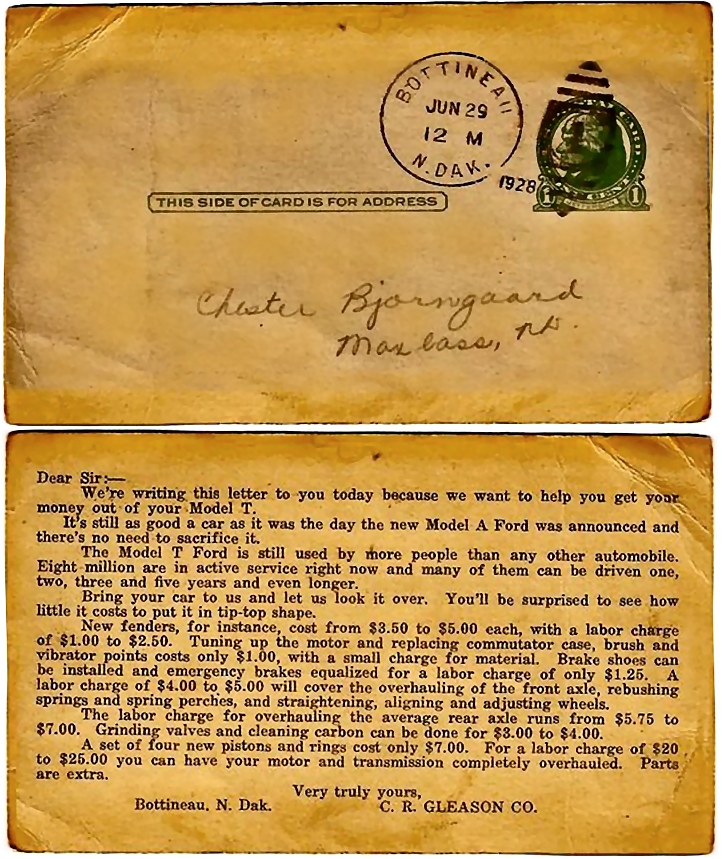 BOTTINEAU
JUN 29
12 M
N. DAK.
1928
1 JEFFERSON 1
THIS SIDE OF CARD IS FOR ADDRESS
Chester Bjorngaard
Maxbass, N.D.
Dear Sir:—
We're writing this letter to you today because we want to help you get your
money out of your Model T.
It's still as good a car as it was the day the new Model A Ford was announced and
there's no need to sacrifice it.
The Model T Ford is still used by more people than any other automobile.
Eight million are in active service right now and many of them can be driven one,
two, three and five years and even longer.
Bring your car to us and let us look it over. You'll be surprised to see how
little it costs to put it in tip-top shape.
New fenders, for instance, cost from $3.50 to $5.00 each, with a labor charge
of $1.00 to $2.50. Tuning up the motor and replacing commutator case, brush and
vibrator points costs only $1.00, with a small charge for material. Brake shoes can
be installed and emergency brakes equalized for a labor charge of only $1.25. A
labor charge of $4.00 to $5.00 will cover the overhauling of the front axle, rebushing
springs and spring perches, and straightening, aligning and adjusting wheels.
The labor charge for overhauling the average rear axle runs from $5.75 to
$7.00. Grinding valves and cleaning carbon can be done for $3.00 to $4.00.
A set of four new pistons and rings cost only $7.00. For a labor charge of $20
to $25.00 you can have your motor and transmission completely overhauled. Parts
are extra.
Very truly yours,
Bottineau, N. Dak. C. R. GLEASON CO.